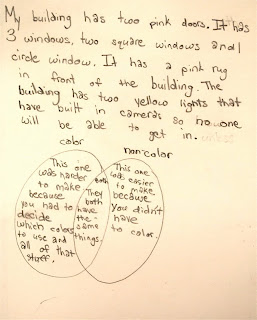 My building has two pink doors. It has
3 windows, two square windows and 1
circle window. It has a pink rug
in front of the building. The
building has two yellow lights that
have built in cameras so no one
will be able to get in.
color
non-color
This one
was harder
to make
because
you had to
decide
which colors
to use and
all of that
stuff.
both
They
both
have
the
same
things.
This one
was easier
to make
because
you didn't
have
to color.